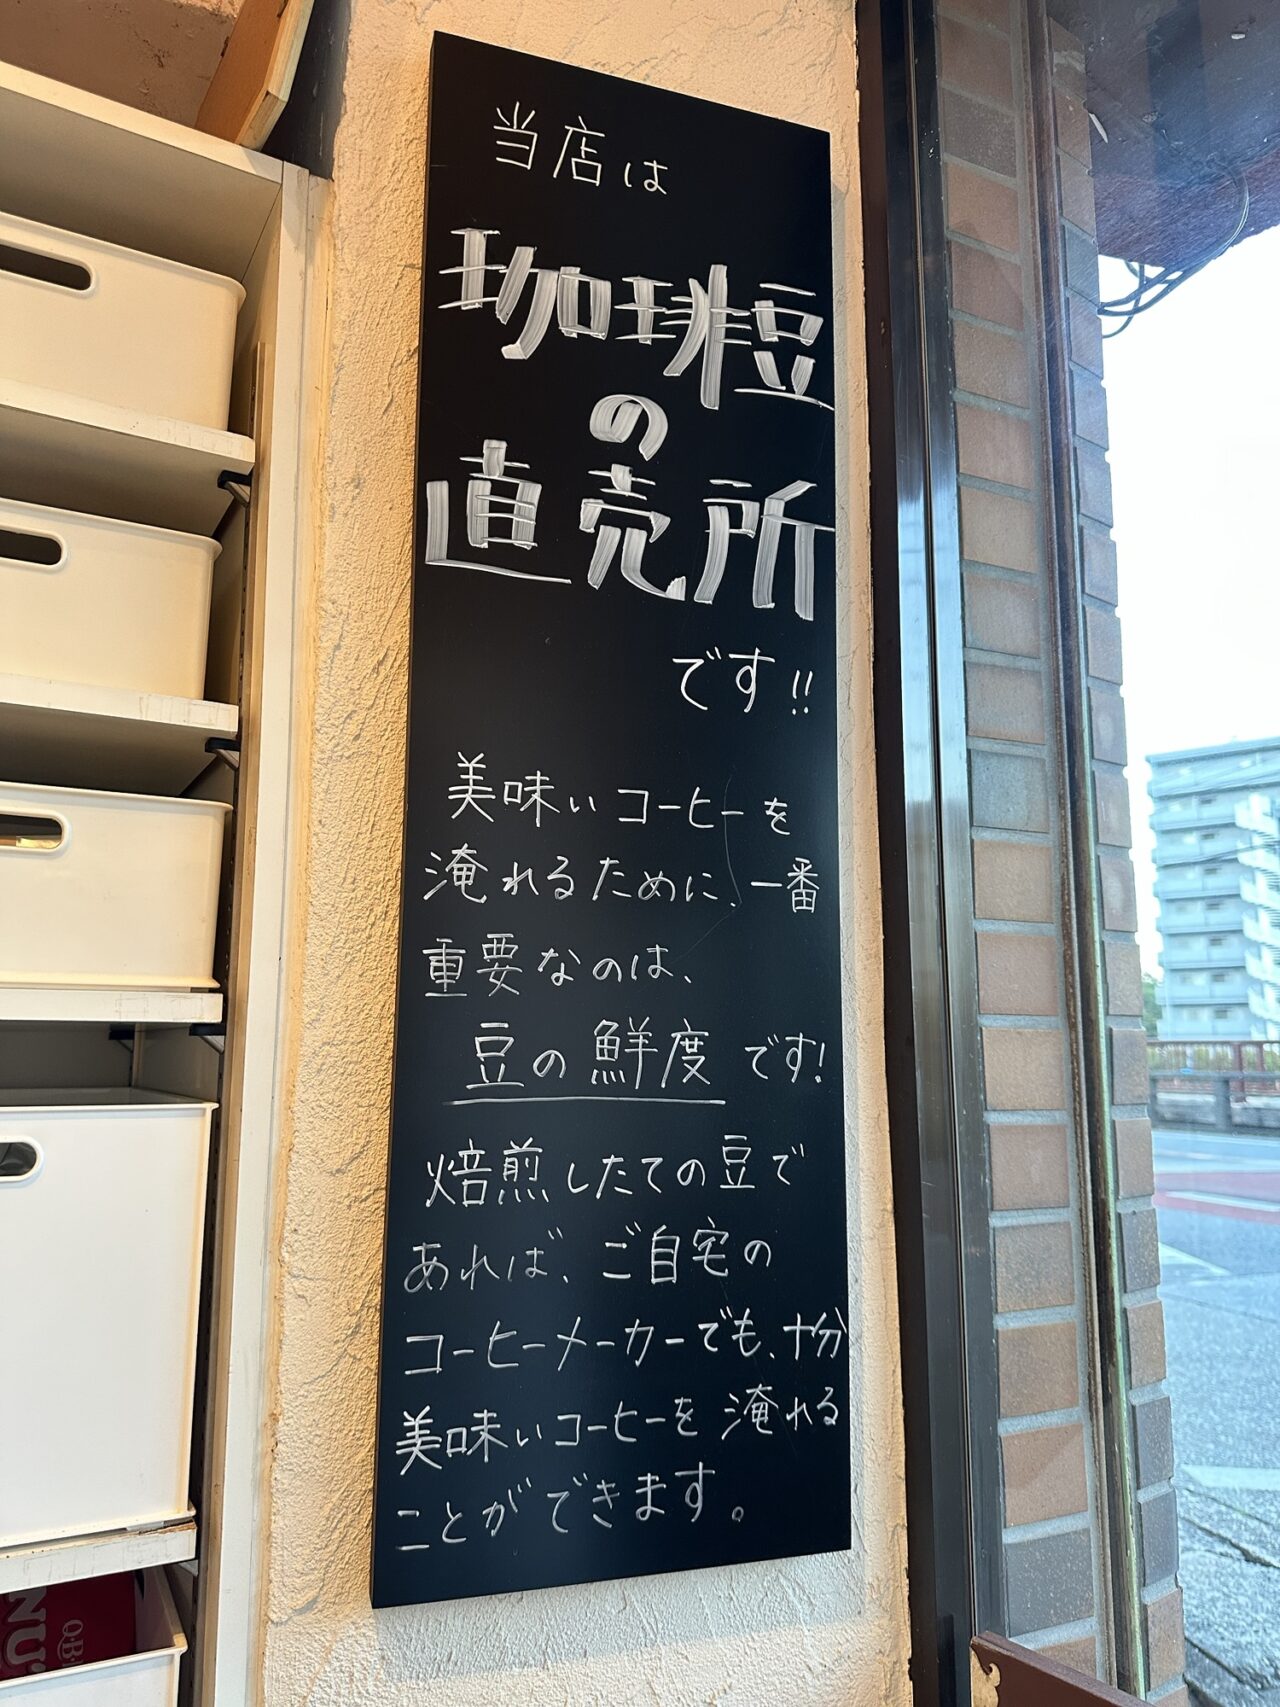 当店は
珈琲豆
の
直売所
です!!
美味いコーヒーを
淹れるために、一番
重要なのは、
豆の鮮度です!
焙煎したての豆で
あれば、ご自宅の
コーヒーメーカーでも、十分
美味いコーヒーを淹れる
ことができます。
NU
Q·B